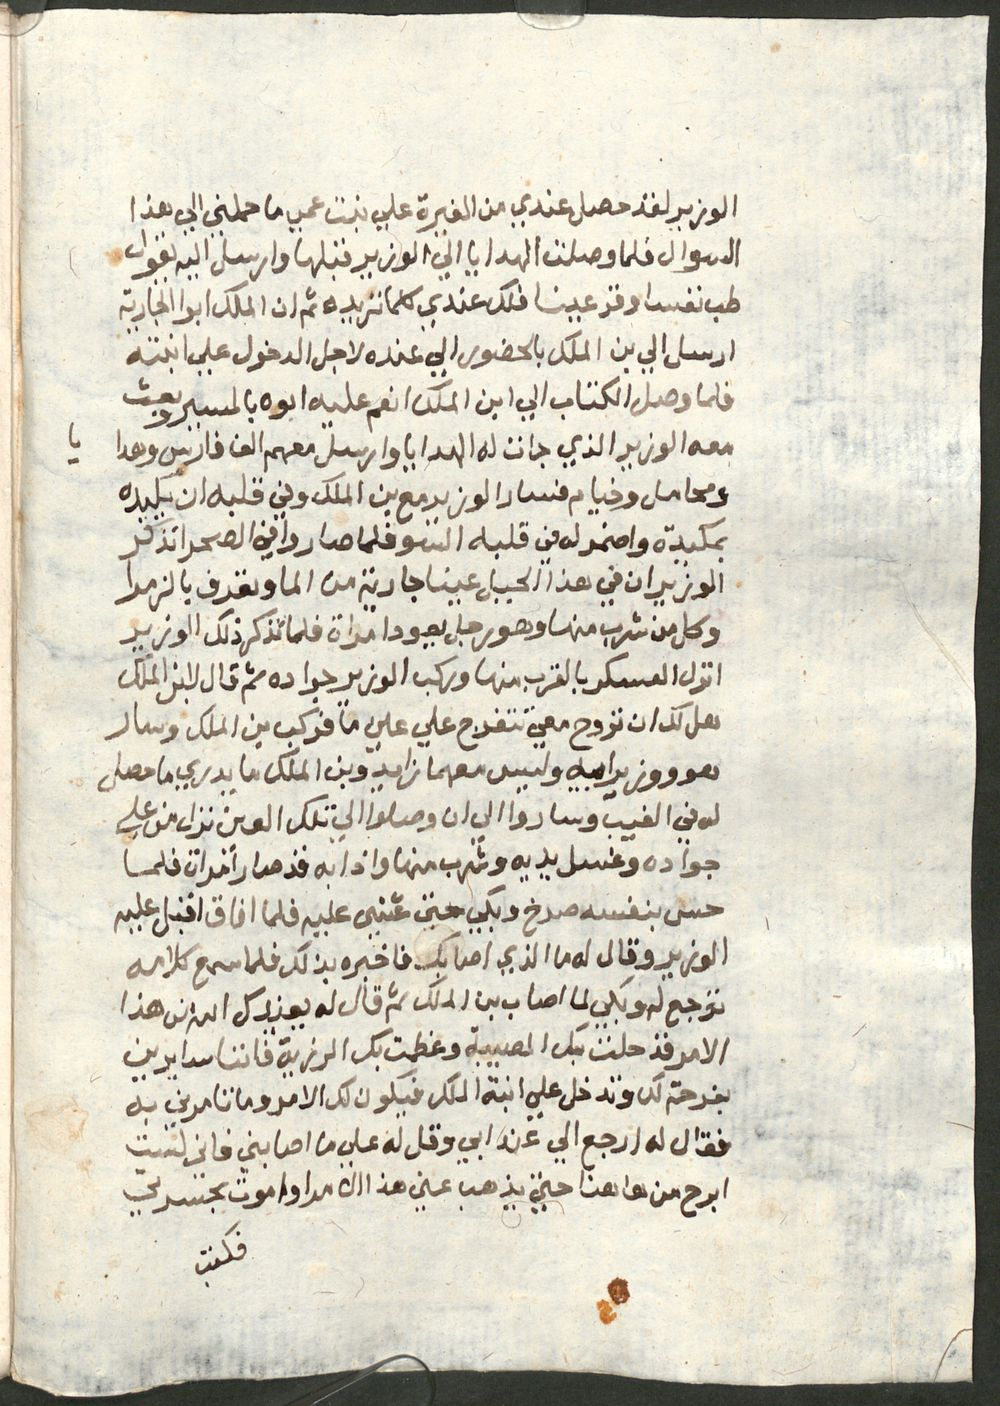 الوزير لقد حصل عندي من الغيرة علي بنت عمي ما حملني الي هذا
السوال فلما وصلت الهدايا الي الوزير قبلها وارسل اليه يقول
طب نفسا وقر عينا فلك عندي كلما تريده ثم ان الملك ابوا الجارية
ارسل الي بن الملك بالحضور الي عنده لاجل الدخول علي ابنته
فلما وصل الكتاب الي ابن الملك انعم عليه ابوه بالمسير وبعث
معه الوزير الذي جات له الهدايا وارسل معهم الف فارس وهدا
يا
ومحامل وخيام فسار الوزير مع بن الملك وفي قلبه ان يكيده
بمكيدة واضمر له في قلبه السو فلما صاروا في الصحرا تذكر
الوزير ان في هذا الجبل عينا جارية من الما وتعرف بالزهرا
وكل من شرب منها وهو رجل يعود امراة فلما تذكر ذلك الوزير
انزل العسكر بالقرب منها وركب الوزير جواده ثم قال لابن الملك
هل لك ان تروح معي نتفرج علي عين ما فركب بن الملك وسار
هو ووزير ابيه وليس معهما وبن الملك ما يدري ما حصل
له في الغيب وساروا الي ان وصلوا الي تلك العين نزل من علي
جواده وغسل يديه وشرب منها واذا به قد صار امراة فلما
حس بنفسه صرخ وبكي حتي غشي عليه فلما افاق اقبل عليه
الوزير وقال له ما الذي اصابك فاخبره بذلك فلما سمع كلامه
توجع له وبكي لما اصاب بن الملك ثم قال له هذا
الامر قد حلت بك المصيبة وعظمت بك الرزية فاننا سايرين
بفرحة لك وتدخل علي ابنة الملك فيكون لك الامر وما تامرني به
فقال له ارجع الي عند ابي وقل له علي ما اصابني فاني لست
ابرح من هاهنا حتي يذهب عني هذا الامر او اموت بحسرتي
فكتب